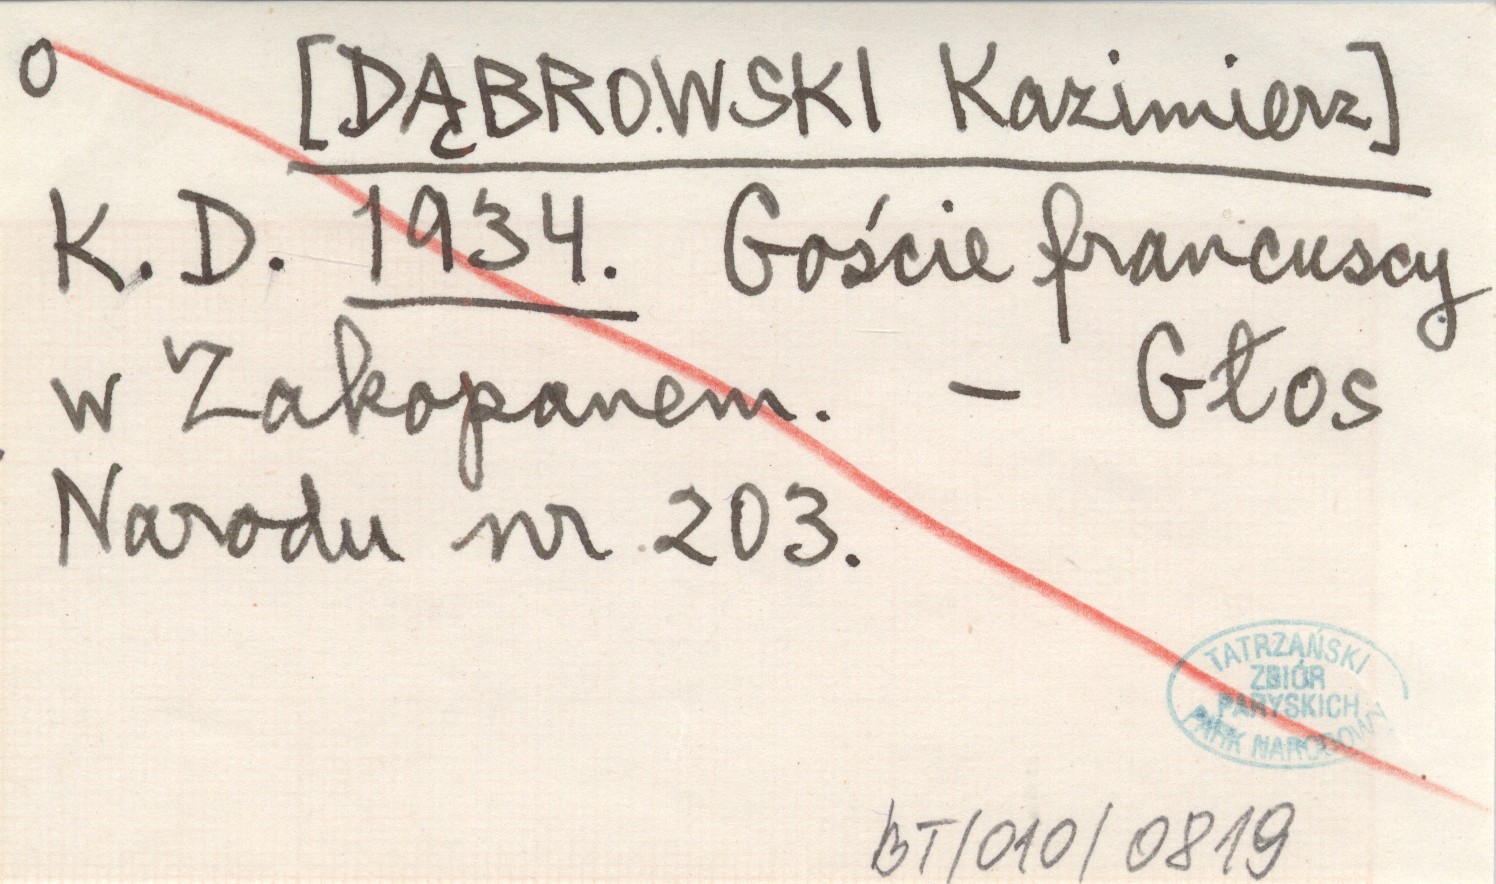 o [DĄBROWSKI Kazimierz]
K. D. 1934. Goście francuscy
w Zakopanem. – Głos
Narodu nr 203.
TATRZAŃSKI
ZBIÓR
PARYSKICH
PARK NARODOWY
BT/010/0819